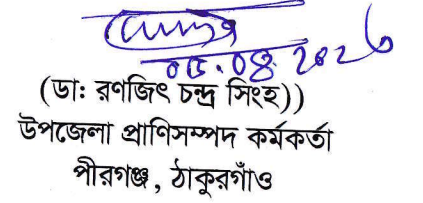 ০৫.০৪.২০২৬
(ডা: রণজিৎ চন্দ্র সিংহ))
উপজেলা প্রাণিসম্পদ কর্মকর্তা
পীরগঞ্জ, ঠাকুরগাঁও